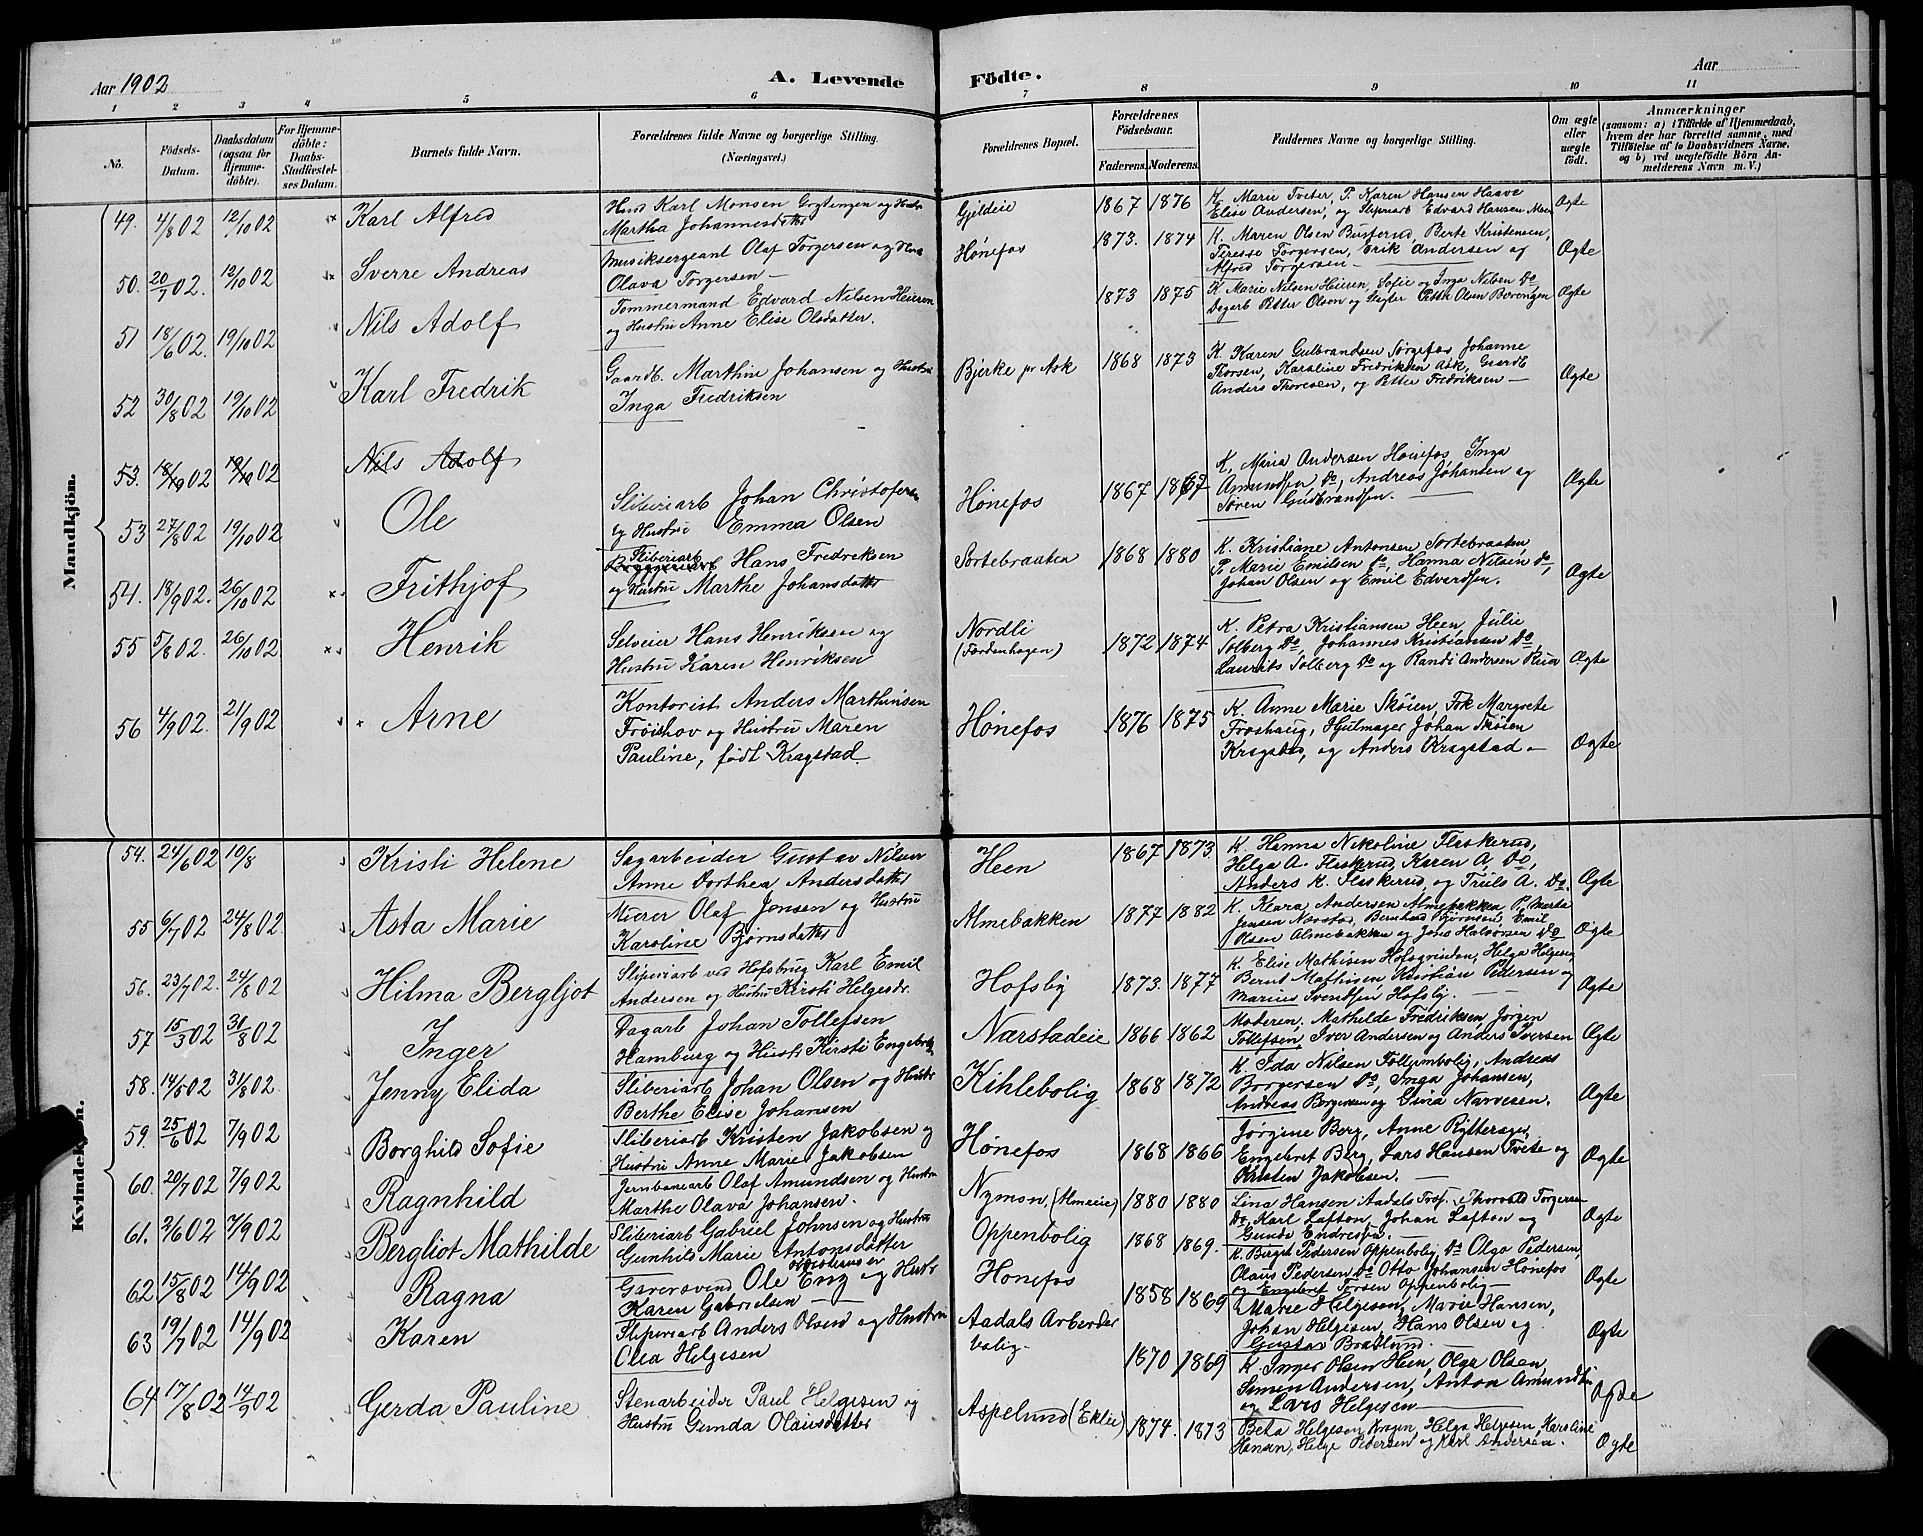 Aar 1902
A. Levende Födte.
Aar
1 2 3 4 5 6 7 8 9 10 11
No.
Födsels-Datum.
Daabsdatum (ogsaa for Hjemme-döbte).
For Hjemme-döbte: Daabs-Stadfæstel-ses Datum.
Barnets fulde Navn.
Forældrenes fulde Navne og borgerlige Stilling. (Næringsvei.)
Forældrenes Bopæl.
Forældrenes Födselsaar.
Faderens. Moderens.
Faddernes Navne og borgerlige Stilling.
Om ægte eller uægte födt.
Anmærkninger
(saasom: a) i Tilfælde af Hjemmedaab, hvem der har forrettet samme, med Tilföielse af to Daabsvidners Navne, og b) ved uægtefödte Börn An-melderens Navn m. V.)
Mandkjön.
49. 4/8 02 12/10 02 Karl Alfred
Husd Karl Monsen Grytingen og Hustr
Martha Johannesdatter
Gjildeie 1867 1876
K. Marie Tveter, P. Karen Hansen Haave
Elise Andersen, og Slipearb Edvard Hansen Moen
Ægte
50. 20/7 02. 12/10 02 Sverre Andreas
Musiksergeant Olaf Torgersen og Hus
Olava Torgersen —
Hønefos 1873. 1874
K. Maren Olsen Busterud, Berte Kristensen,
Terese Torgersen, Erik Andersen og
Alfred Torgersen —
Ægte
51 18/6 02. 19/10 02 Nils Adolf
Tømmermand Edvard Nilsen Heieren
og Hustru Anne Elise Olsdatter.
1873 1875
K Marie Nilsen Heieren, Sofie og Inga Nilsen Do
Dagarb Petter Olsen og Slagter Petter Olsen Borengen
Ægte
52 30/8 02 19/10 02 Karl Fredrik
Gaardb. Marthin Johansen og Hustru
Inga Fredriksen
Bjerke pr Ask 1868 1873
K. Karen Gulbrandsen Sørgefos Johanne
Thorsen, Karoline Fredriksen Ask, Gaardb
Anders Thoresen, og Petter Fredriksen —
Ægte
53. 18/9 02 19/10 02 Nils Adolf
53 27/8 02 19/10 02 Ole
Sliberiarb Johan Christofersen
og Hustru Emma Olsen
Hønefos 1867 1867
K. Maria Andersen Hønefos Inga
Amundsen Do, Andreas Johansen og
Søren Gudbrandsen. —
Ægte
54. 18/9 02. 26/10 02 Frithjof
Sliberiarb Hans Fredreksen
og Hustru Marthe Johansdatter
Sortebraaten 1868 1880
K. Kristiane Antonsen Sortebraaten
P. Marie Emilsen Do, Hanna Nilsen Do,
Johan Olsen og Emil Edvardsen.
Ægte
55 5/8 02. 26/10 02 Henrik
Selveier Hans Henriksen og
Hustru Karen Henriksen
Nordli
(Tordenhagen) 1872 1874
K. Petra Kristiansen Heen, Julie
Solberg Do, Johannes Kristiansen Do
Laurits Solberg Do og Randi Andersen Rua
Ægte
56 4/9 02. 21/9 02 Arne
Kontorist Anders Marthinsen
Frøishov og Hustru Maren
Pauline, født Kragstad
Hønefos 1876 1875
K. Anne Marie Skøien, Frk Margrete
Froshaug, Hjulmager Johan Skøien
Kragstad, og Anders Kragstad —
Ægte
Kvindekjön.
54. 24/6 02 10/8 Kristi Helene
Sagarbeider Gustav Nilsen
Anne Dorthea Andersdatter
Heen 1867 1873
K. Hanna Nikoline Flaskerud,
Helga A. Flaskerud, Karen A. Do,
Anders K. Flaskerud, og Truls A. Do.
Ægte
55 6/7 02 24/8 02. Asta Marie
Murer Olaf Jensen og Hustru
Karoline Bjørnsdatter
Almebakken 1877 1882
K. Klara Andersen Almebakken P. Marta
Jensen Nærstad, Bernhard Bjørnsen, Emil
Olsen Almebakken og Jens Halvorsen Do
Ægte
56. 23/7 02. 24/8 02 Hilma Bergljot
Sliperiarb ved Hofsbrug Karl Emil
Andersen og Hustru Kirsti Helgesdr.
Hofsby 1873. 1877
K. Elise Mathisen Hofsgrinden, Helga Helgesen
Bernt Mathisen, Kristian Pedersen og
Marius Svendsen Hofsby. —
Ægte
57 15/3 02 31/8 02 Inger
Dagarb Johan Tollefsen
Hamburg og Hustr Kirsti Engebretsen
Nærstadeie 1866 1862
Moderen, Mathilde Fredriksen, Jörgen
Tollefsen, Iver Andersen og Anders Iversen
Ægte
58. 14/5 02 31/8 02. Jenny Elida
Sliberiarb Johan Olsen og Hustr
Berthe Elise Johansen
Kihlebolig 1868 1872
K. Ida Nilsen Follumbolig, Andreas
Borgersen Do, Inga Johansen,
Andreas Borgersen og Sivia Narvesen.
Ægte
59. 25/6 02 7/9 02 Borghild Sofie
Sliberiarb Kristen Jakobsen og
Hustru Anne Marie Jakobsen
Hønefos 1868 1866
Jørgine Berg, Anne Ryttersager
Engebret Berg, Lars Hansen Tveite og
Kristen Jakobsen. —
Ægte
60. 20/7 02 7/9 02 Ragnhild
Jernbanearb Olaf Amundsen og Hustru
Marthe Olava Johansen.
Nymon, (Almeie) 1880 1880
Lina Hansen Aadals Træsl. Thorvald Torgersen
Do, Karl Løfton, Johan Løfton og
Gunda Endresen. —
Ægte
61. 3/6 02 7/9 02 Bergliot Mathilde
Sliberiarb Gabriel Johnsen og Hustru
Gunhild Marie Antonsdatter
Oppenbolig 1868 1869.
K. Birgit Pedersen Oppenbolig, Do Olga Pedersen,
Olaus Pedersen Do Otto Johansen Hönefos
og Engebret Iversen Oppenbolig —
Ægte
62 15/8 02 14/9 02 Ragna
Garversvend Ole Eng og Hustr
Karen Gabrielsen —
Honefos 1858 1869
Marie Helgesen, Marie Hansen,
Johan Helgesen, Hans Olsen og
Gustav Braklund. —
Ægte
63 19/7 02 14/9 02 Karen
Sliperiarb Anders Olsen og Hustru
Olea Helgesen
Aadals Arbeider
bolig. 1870 1869
K Inger Olsen Heen, Olga Olsen,
Simen Andersen, Anton Amundsen
og Lars Helgesen —
Ægte
64 17/8 02 14/9 02 Gerda Pauline
Stenarbeider Paul Helgesen og
Hustru Gunda Olausdatter
Aspelund (Eklie) 1874. 1873
Beta Helgesen Kragen, Helga Helgesen, Karoline
Hansen, Helge Pedersen og Karl Andersen.
Ægte